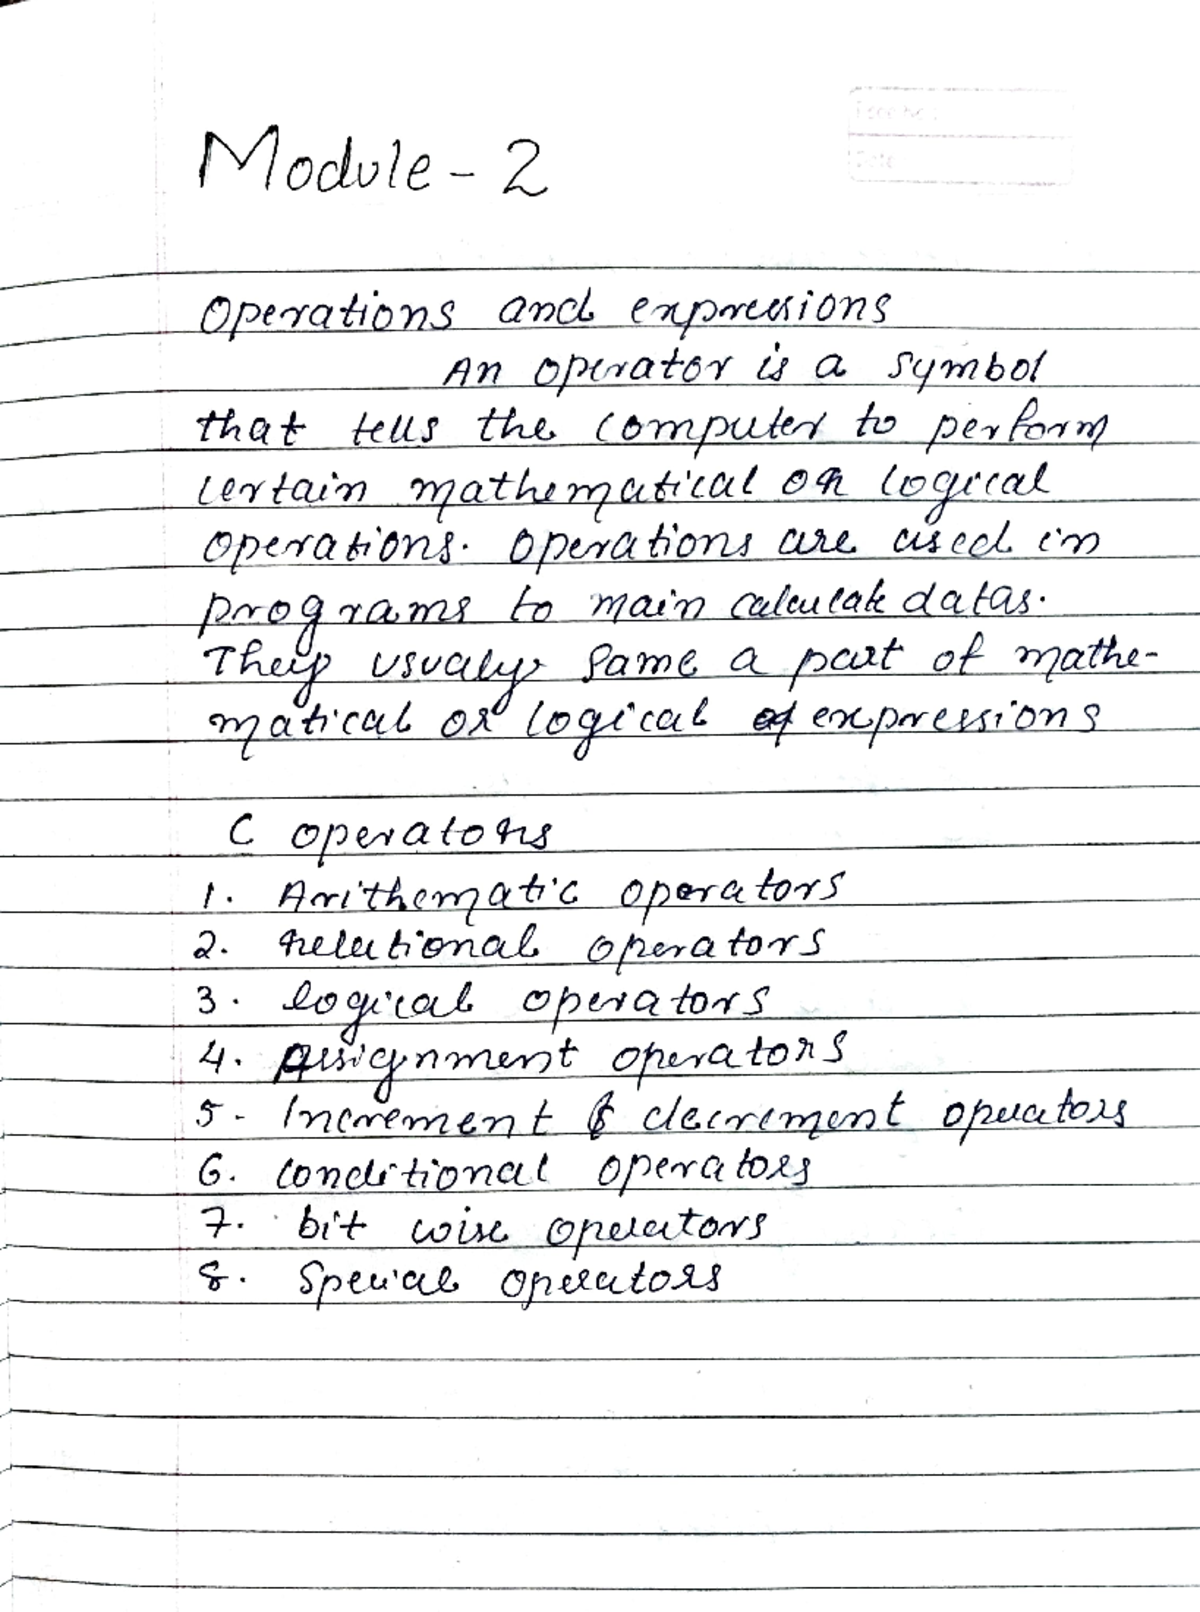 Module - 2
Operations and expressions
An operator is a symbol
that tells the computer to perform
certain mathematical or logical
operations. Operations are used in
programs to main calculate datas.
They usualy same a part of mathe-
matical or logical of expressions
C operators
1. Arithematic operators
2. Relational operators
3. logical operators
4. Assignment operators
5- Increment & decrement operators
6. Conditional operators
7. bit wise operators
8. Special operators